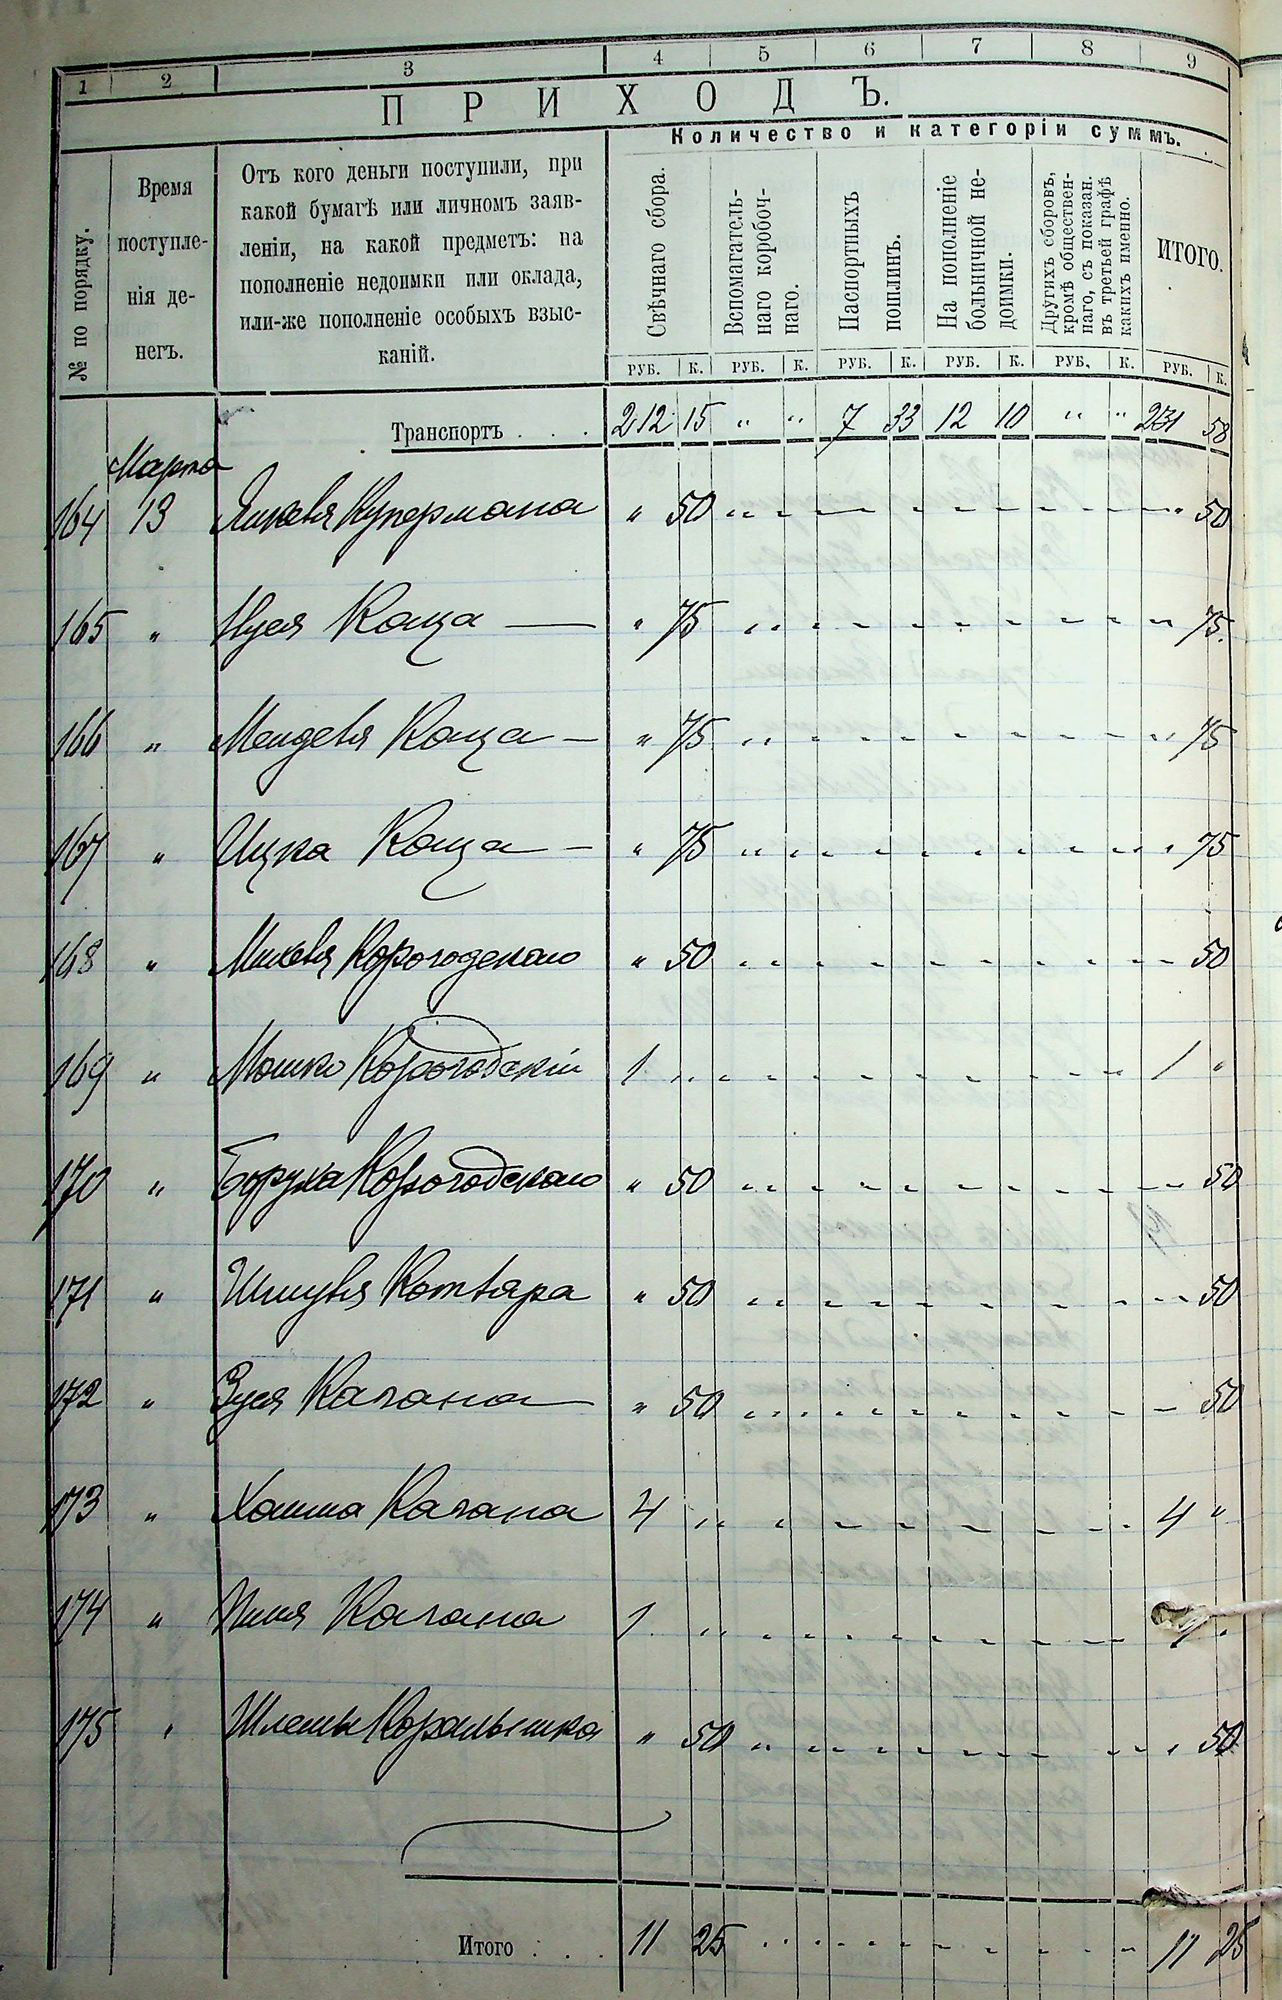 1 2 3 4 5 6 7 8 9
ПРИХОДЪ.
Количество и категоріи суммъ.
№ по порядку.
Время
поступле-
нія де-
негъ.
Отъ кого деньги поступили, при
какой бумагѣ или личномъ заяв-
леніи, на какой предметъ: на
пополненіе недоимки или оклада,
или-же пополненіе особыхъ взыс-
каній.
Свѣчнаго сбора.
Вспомагатель-
наго коробоч-
наго.
Паспортныхъ
пошлинъ.
На пополненіе
больничной не-
доимки.
Другихъ сборовъ,
кромѣ обществен-
наго, съ показан.
въ третьей графѣ
какихъ именно.
ИТОГО.
РУБ. К. РУБ. К. РУБ. К. РУБ. К. РУБ. К. РУБ. К.
Транспортъ . . . 212 15 " " 7 33 12 10 " " 231 58
Марта
164 13 Янкевя Купермана " 50 " 50
165 " Нуся Каца — " 75 75.
166 " Менделя Каца — " 75 " 75
167 " Ицка Каца — " 75 " 75
168 " Корогодскаго " 50 50
169 " Мошко Корогодскій 1 " 1 "
170 " Боруха Корогодскаго " 50 50
171 " Шмуля Котляра " 50 50
172 " Зуся Кагана — " 50 50
173 " Хаима Кагана 4 " 4 "
174 " Пиня Кагана 1 " 1 "
175 " Шлемы " 50 " 50
Итого . . . 11 25 11 25